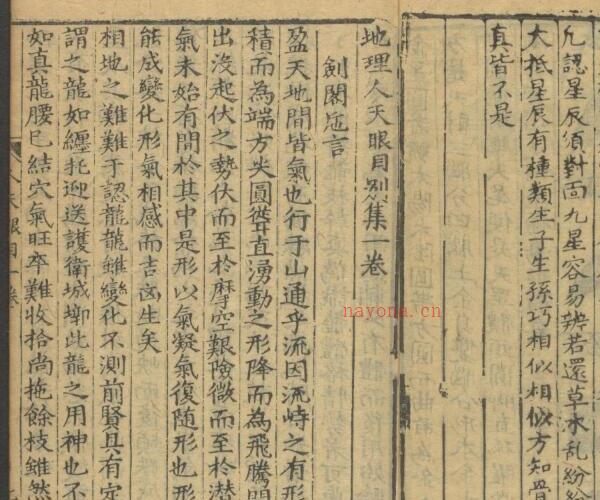 凢認星辰須對面九星容易辨若還草水乱紛紛
大抵星辰有種類生子生孫巧相似相似方知骨
真皆不是
地理人天眼目別集一卷
劍閣寇言
盈天地間皆氣也行于山通乎流因流峙之有形
積而為端方尖圓聳直湧動之形降而為飛騰閃
出没起伏之勢伏而至於摩空艱險微而至於潜
氣未始有間於其中是形以氣凝氣復随形也形
能成變化形氣相感而吉凶生矣
相地之難難于認龍龍雖變化不測前賢具有定
謂之龍如纏托迎送護衛城墎此龍之用神也不
如真龍腰巳結穴氣旺卒難收拾尚拖餘枝雖然
nayona.cn